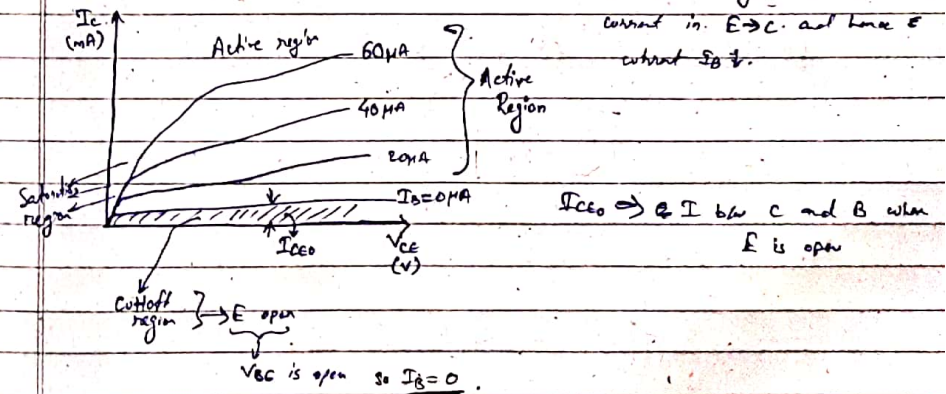 Ic
(mA)
Active region
60μA
40μA
20μA
IB=0μA
Active
Region
Saturation
region
ICEO
VCE
(V)
Cuttoff
region
→ E open
VBE is open so IB=0.
current in E→C. and hence
current IB ↓.
ICEO ⇒ I b/w C and B when
E is open